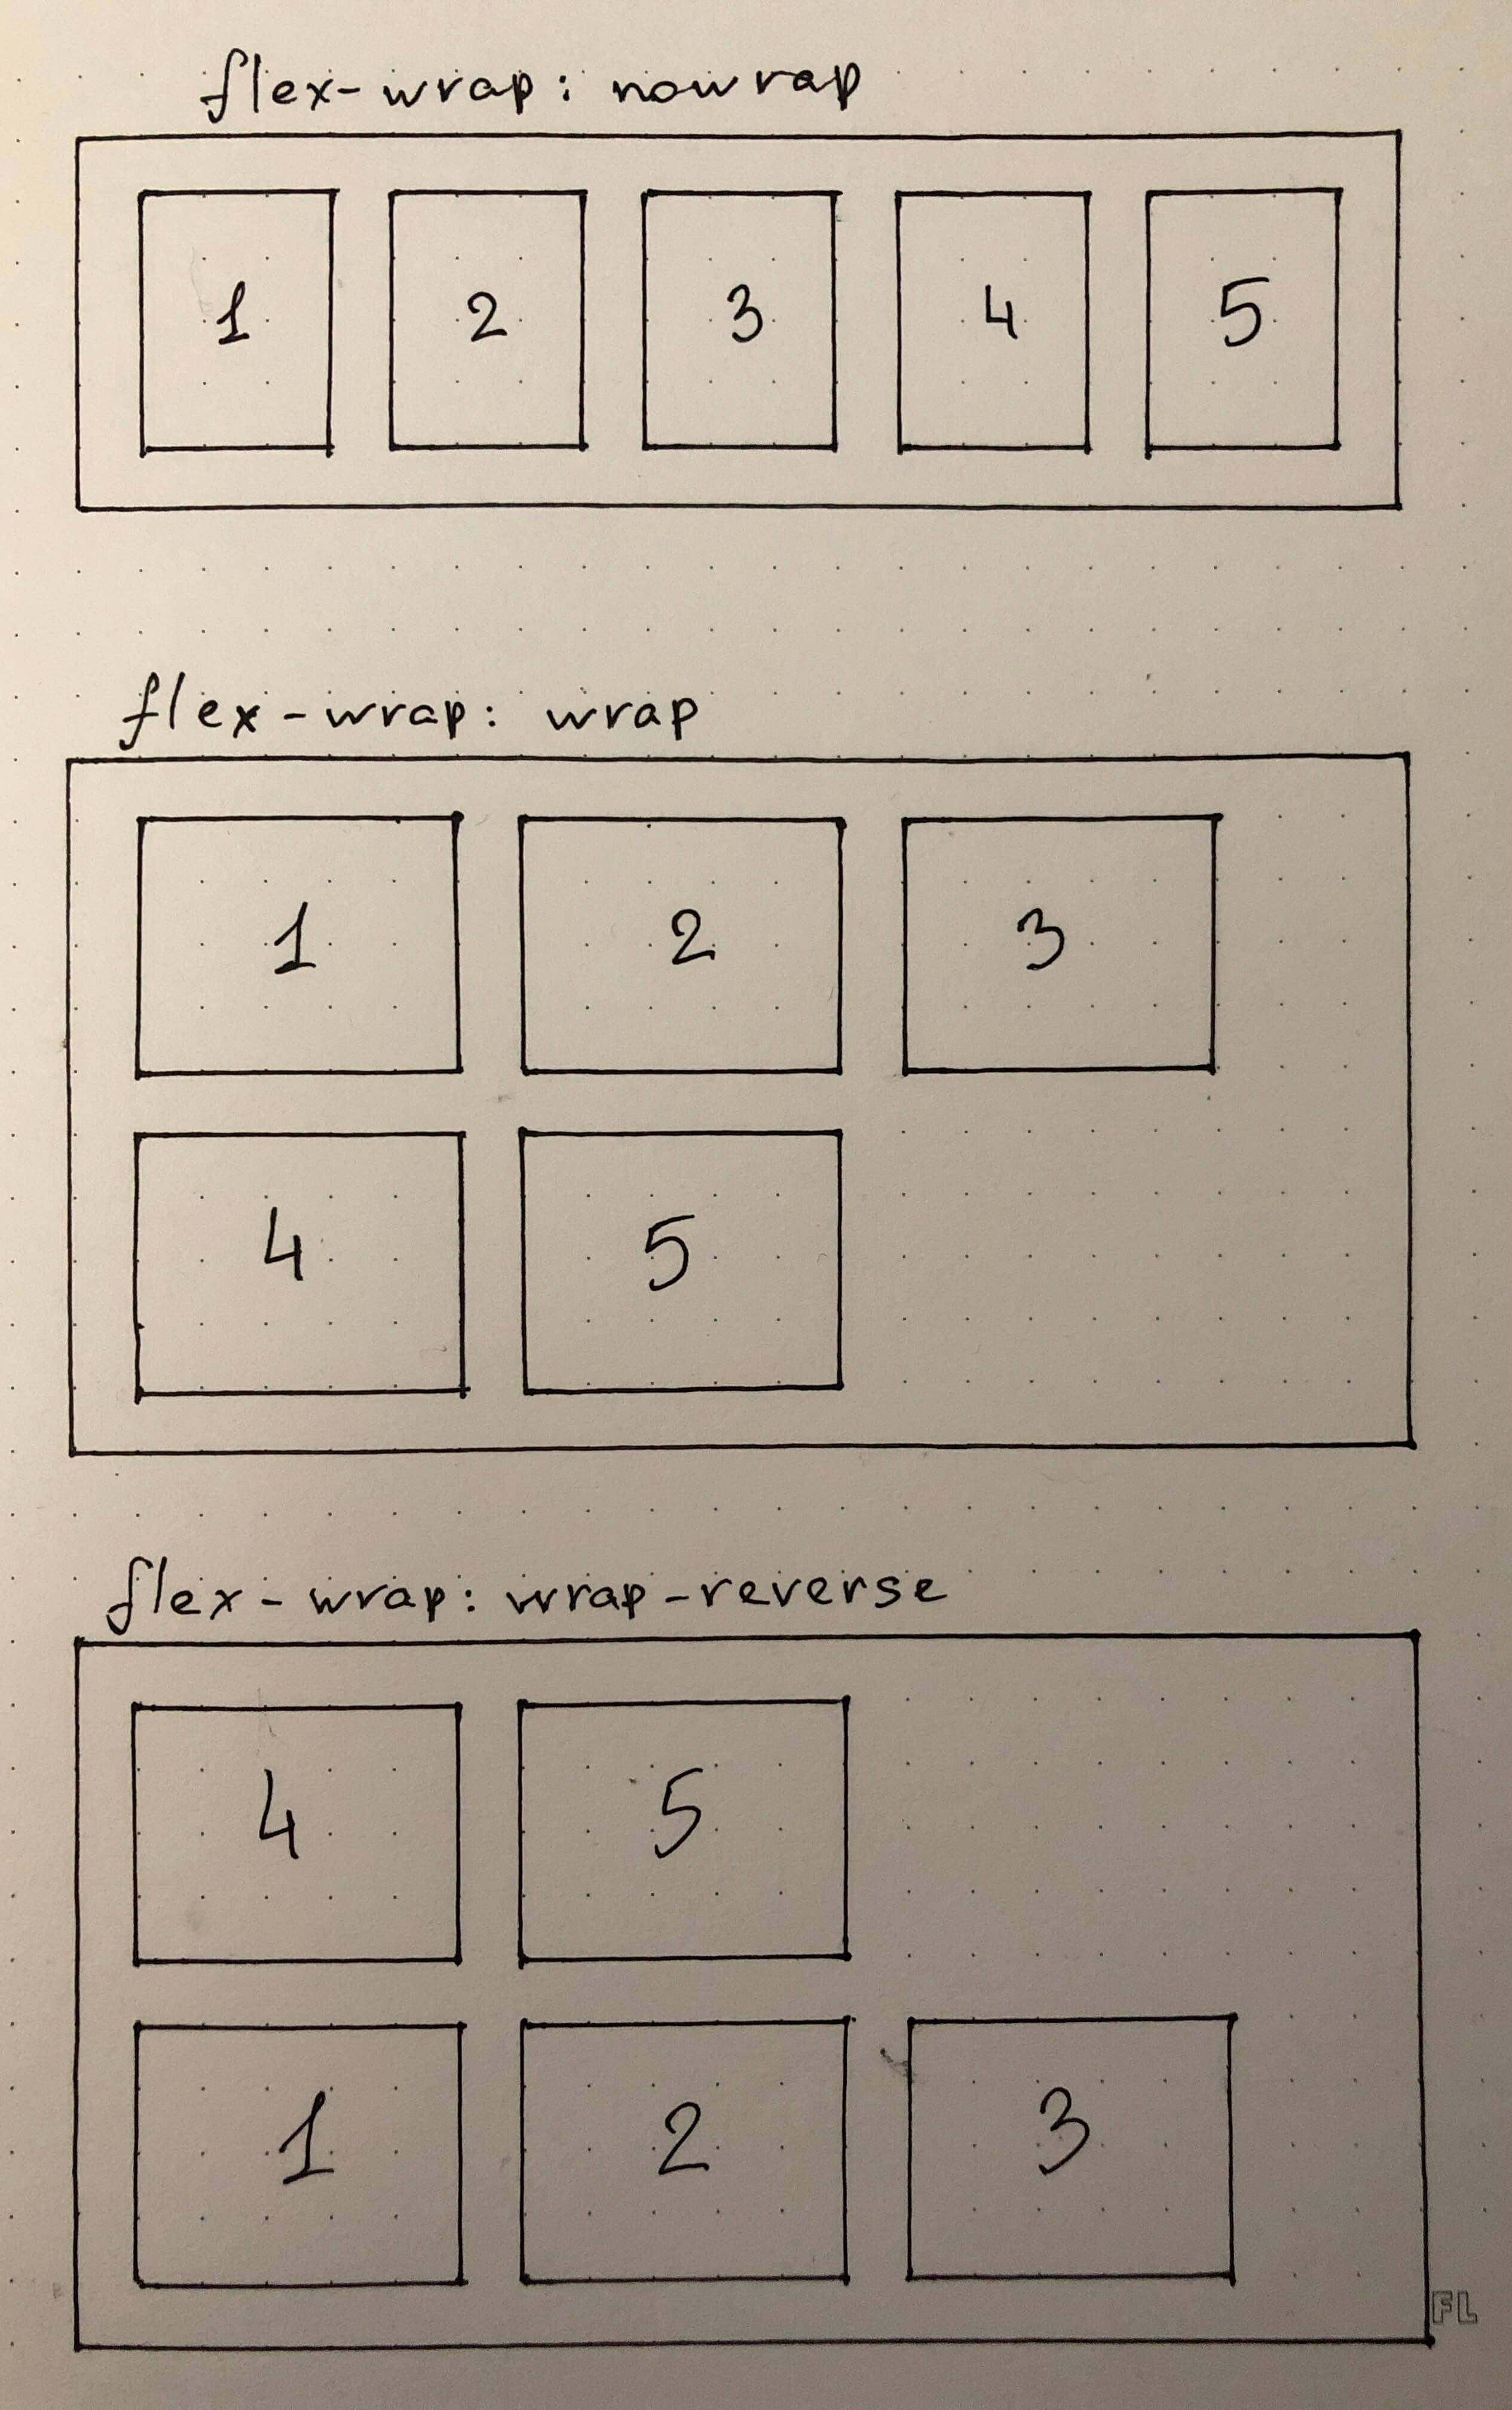 flex-wrap: nowrap
1 2 3 4 5
flex-wrap: wrap
1 2 3
4 5
flex-wrap: wrap-reverse
4 5
1 2 3
FL